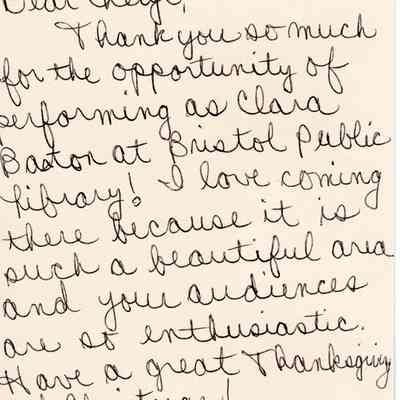 Dear Cheryl,
Thank you so much
for the opportunity of
performing as Clara
Barton at Bristol Public
Library! I love coming
there because it is
such a beautiful area
and your audiences
are so enthusiastic.
Have a great Thanksgiving